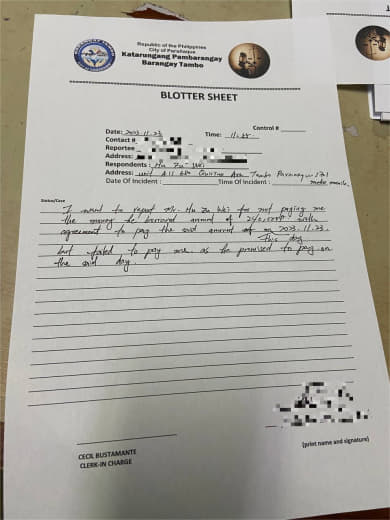 Republic of the Philippines
City of Parañaque
Katarungang Pambarangay
Barangay Tambo
BLOTTER SHEET
Control #
Date: 2023.11.23 Time:
Contact #
Reportee
Address:
Respondents: Hu Zu Wei
Address: unit A11 Quirino Ave Tambo Paranaque
Date Of Incident: Time Of Incident: metro manila
Status/Case
I want to report Mr. Hu Zu Wei for not paying me
the money he borrowed amount of with
agreement to pay the said amount on 2023.11.23.
This day
but failed to pay me as he promised to pay on
the said day.
CECIL BUSTAMANTE
CLERK-IN CHARGE
(print name and signature)